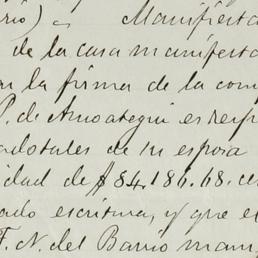 rio) — Manifesta
de la casa manifesta
la firma de la com
P. de Amoategui es
adotales de su esposa
idad de $84,186.68. ce
ado escritura, y que e
F. N. del Barrio man